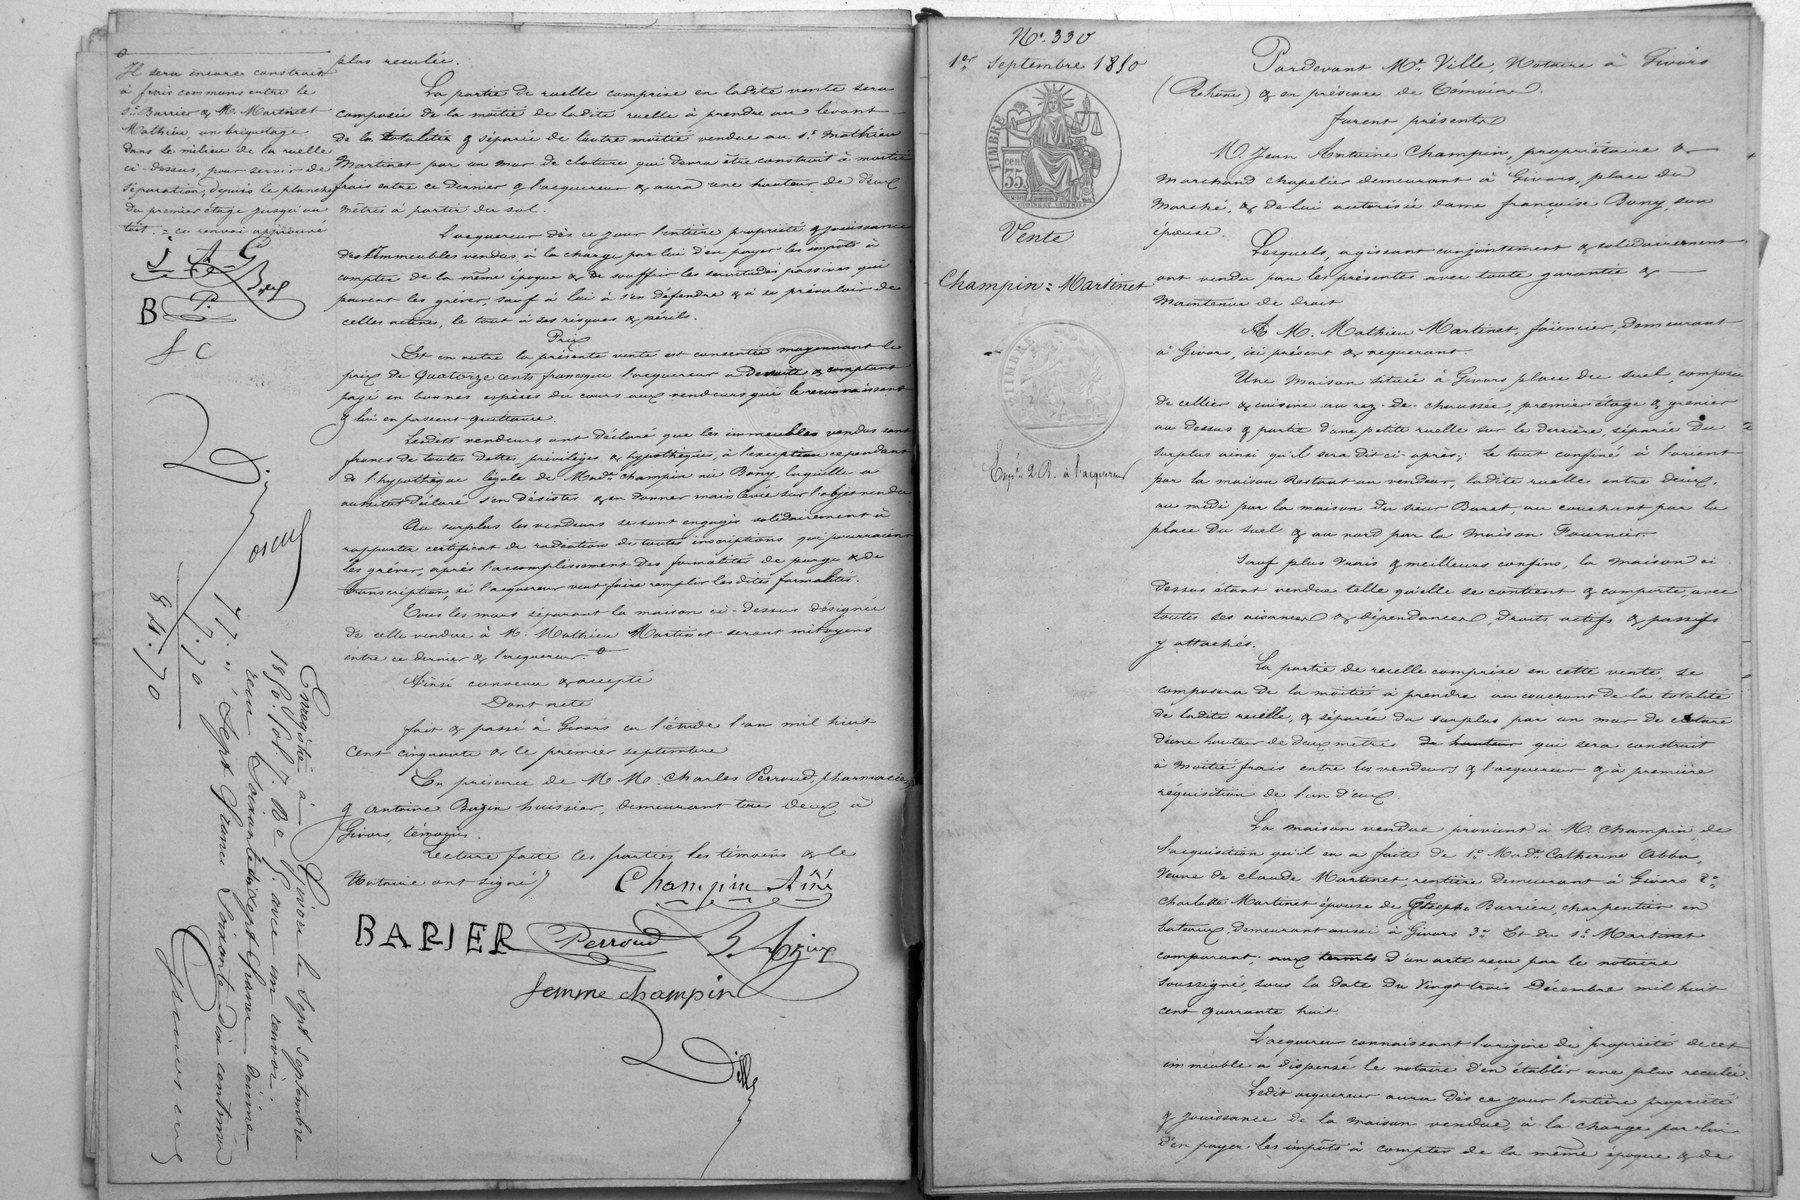 plus reculée.
La partie de ruelle comprise en ladite vente sera
composée de la moitié de ladite ruelle à prendre au levant
de la totalité & séparée de l'autre moitié vendue au Sr. Mathieu
Martinet par un mur de cloture qui devra être construit à moitié
frais entre ce dernier & l'acquereur & aura une hauteur de deux
mètres à partir du sol.
L'acquereur dès ce jour l'entière propriété & jouissance
des immeubles vendus, à la charge par lui d'en payer les impôts à
compter de la même époque & de souffrir les servitudes passives qui
peuvent les grever, sauf à lui à s'en défendre & à se prévaloir de
celles actives, le tout à ses risques & périls.
Prix
Et en outre la présente vente est consentie moyennant le
prix de Quatorze cents francs que l'acquereur a de suite & comptant
payé en bonnes espèces du cours aux vendeurs qui le reconnaissent
& lui en passent quittance.
Lesdits vendeurs ont déclaré que les immeubles vendus sont
francs de toutes dettes, privilèges & hypothèques, à l'exception cependant
de l'hypothèque légale de Made. Champin née Bony, laquelle a
aussitot déclaré s'en désister & en donner mainlevée sur l'objet vendu
Au surplus les vendeurs se sont engagés solidairement à
rapporter certificat de radiation de toutes inscriptions qui pourraient
les gréver, après l'accomplissement des formalités de purge & de
transcription, si l'acquereur veut faire remplir lesdites formalités.
Tous les murs séparant la maison ci-dessus désignée
de celle vendue à M. Mathieu Martinet seront mitoyens
entre ce dernier & l'acquereur.
Ainsi convenu & accepté
Dont acte
fait & passé à Givors en l'étude l'an mil huit
cent cinquante & le premier septembre
En présence de M.M. Charles Perroud, pharmacien,
& Antoine Bazin huissier, demeurant tous deux à
Givors, témoins.
Lecture faite les parties les témoins & le
Notaire ont signé
Champin Ainé
BARIER Perroud
femme champin
Ville
Il sera encore construit
à frais communs entre le
Sr. Barrier & M. Martinet
Mathieu, un briquetage
dans le milieu de la ruelle
ci-dessus, pour servir de
séparation, depuis le plancher
du premier étage jusqu'au
toit. = ce renvoi approuvé
J A C
B P.
f C
Ville
77. "
7. 70
84. 70
Enregistré à Givors le Sept septembre
1850. fol. 7 Ro c. 7. avec un renvoi.
reçu Soixante dix sept francs, décime
sept francs soixante dix centimes
No. 330
1er. Septembre 1850
TIMBRE
cen
35
Vente
Champin = Martinet
TIMBRE
Expn. 2 R. à l'acquereur
Pardevant Me. Ville, Notaire à Givors
(Rhône) & en présence de Témoins.
furent présents
M. Jean Antoine Champin, propriétaire &
marchand chapelier demeurant à Givors, place du
Marché, & de lui autorisée dame françoise Bony, son
épouse.
Lesquels, agissant conjointement & solidairement
ont vendu par les présentes avec toute garantie &
maintenue de droit
A M. Mathieu Martinet, faïencier, demeurant
à Givors, ici présent & acquerant.
Une maison située à Givors place du suel, composée
de cellier & cuisine au rez-de-chaussée, premier étage & grenier
au dessus & partie d'une petite ruelle sur le derrière, séparée du
surplus ainsi qu'il sera dit ci-après; le tout confiné à l'orient
par la maison Restant au vendeur, ladite ruelle entre deux,
au midi par la maison du sieur Baret, au couchant par la
place du suel & au nord par la maison Fournier.
Sauf plus vrais & meilleurs confins, la maison ci
dessus étant vendue telle qu'elle se contient & comporte, avec
toutes ses aisances & dépendances, droits actifs & passifs
y attachés.
La partie de ruelle comprise en cette vente, se
composera de la moitié à prendre au couchant de la totalité
de ladite ruelle, & séparée du surplus par un mur de cloture
d'une hauteur de deux mètres de hauteur qui sera construit
à moitié frais entre les vendeurs & l'acquereur & à première
requisition de l'un d'eux.
La maison vendue provient à M. Champin, de
l'acquisition qu'il en a faite de 1o. Made. Catherine Abba,
veuve de claude Martinet, rentière demeurant à Givors 2o.
Charlotte Martinet épouse de Joseph Barrier, charpentier en
bateaux, demeurant aussi à Givors 3o. Et du Sr. Martinet
comparant; aux termes d'un acte reçu par le notaire
soussigné, sous la date du vingt trois Décembre mil huit
cent quarante huit.
L'acquereur connaissant l'origine de propriété de cet
immeuble a dispensé le notaire d'en établir une plus reculée.
Ledit acquereur aura dès ce jour l'entière propriété
& jouissance de la maison vendue, à la charge par lui
d'en payer les impôts à compter de la même époque & de